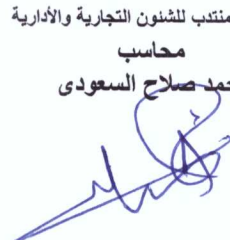 منتدب للشئون التجارية والأدارية
محاسب
حمد صلاح السعودى